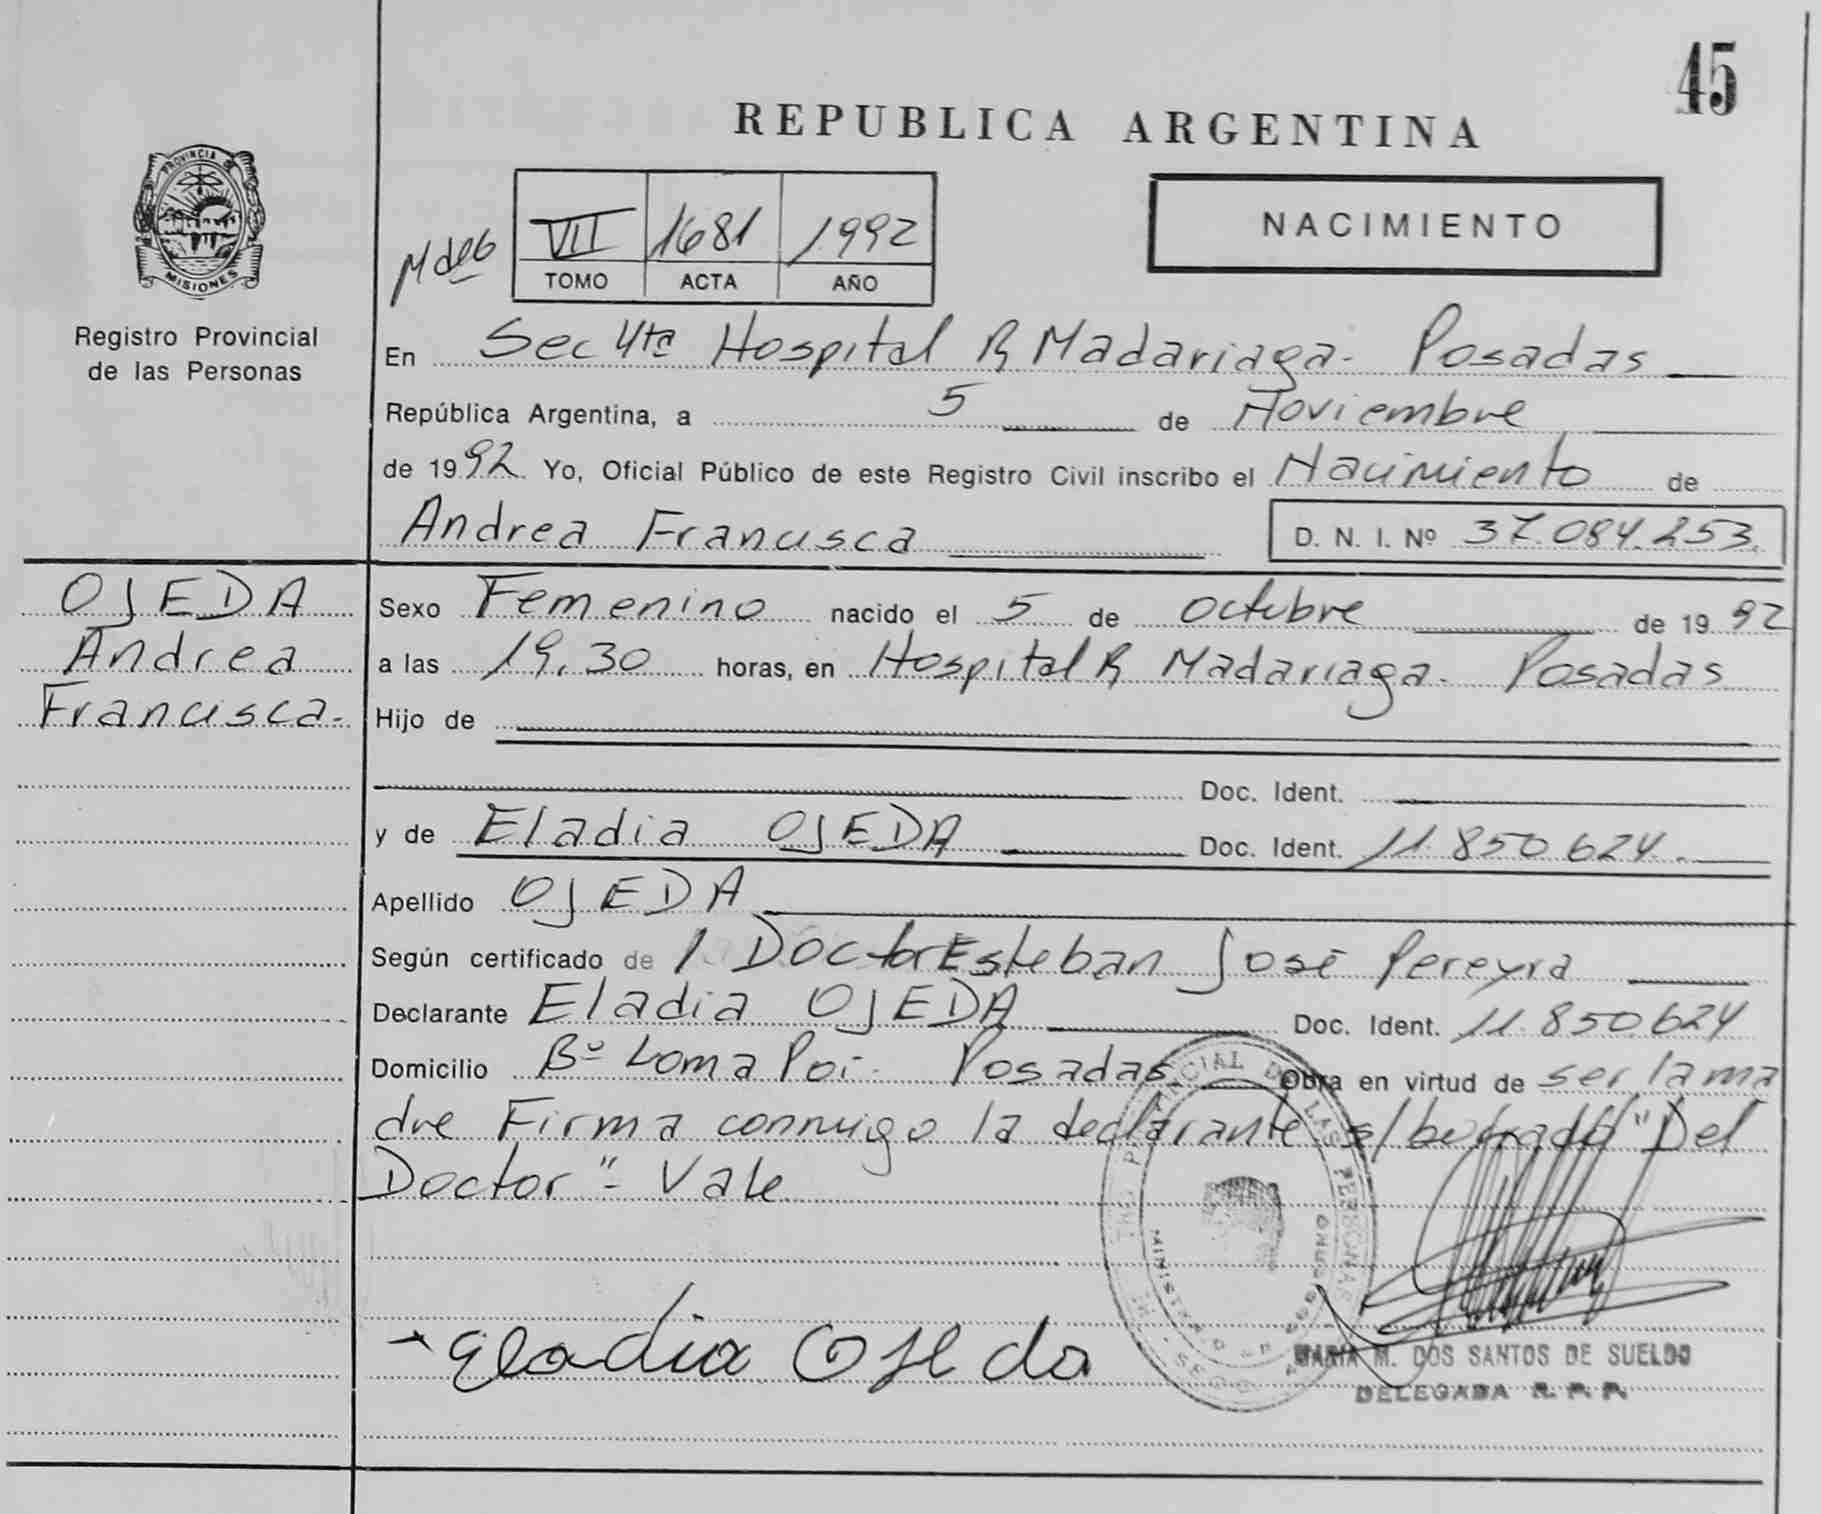 45
REPUBLICA ARGENTINA
PROVINCIA DE
MISIONES
Registro Provincial
de las Personas
VII 1681 1992
TOMO ACTA AÑO
NACIMIENTO
En Sec 4ta Hospital R Madariaga - Posadas
República Argentina, a 5 de Noviembre
de 1992 Yo, Oficial Público de este Registro Civil inscribo el Nacimiento de
Andrea Francisca D. N. I. Nº 37.084.253.
OJEDA
Andrea
Francisca-
Sexo Femenino nacido el 5 de octubre de 1992
a las 19.30 horas, en Hospital R Madariaga - Posadas
Hijo de
Doc. Ident.
y de Eladia OJEDA Doc. Ident. 11.850.624.
Apellido OJEDA
Según certificado de l Doctor Esteban José Pereyra
Declarante Eladia OJEDA Doc. Ident. 11.850.624
Domicilio Bº Loma Poi - Posadas Obra en virtud de ser la ma
dre Firma conmigo la declarante s/borrado "Del
Doctor" - Vale
Eladia Ojeda
MARIA M. DOS SANTOS DE SUELDO
DELEGADA R. P. P.